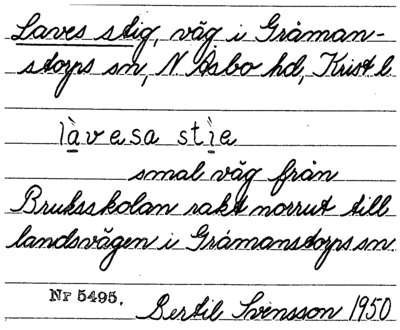 Laves stig, väg i Gråman-
storps sn, N. Åsbo hd, Krist l.
làvesa stìe
smal väg från
Bruksskolan rakt norrut till
landsvägen i Gråmanstorps sn
Nr 5495. Bertil Svensson 1950